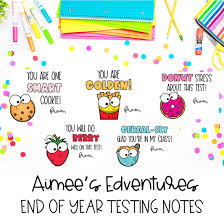 YOU ARE ONE
SMART
COOKIE!
From,
YOU ARE
GOLDEN!
From,
DONUT STRESS
ABOUT THIS TEST!
From,
YOU WILL DO
BERRY
WELL ON THIS TEST!
From,
CEREAL-SLY
GLAD YOU'RE IN MY CLASS!
From,
Aimee's Edventures
END OF YEAR TESTING NOTES